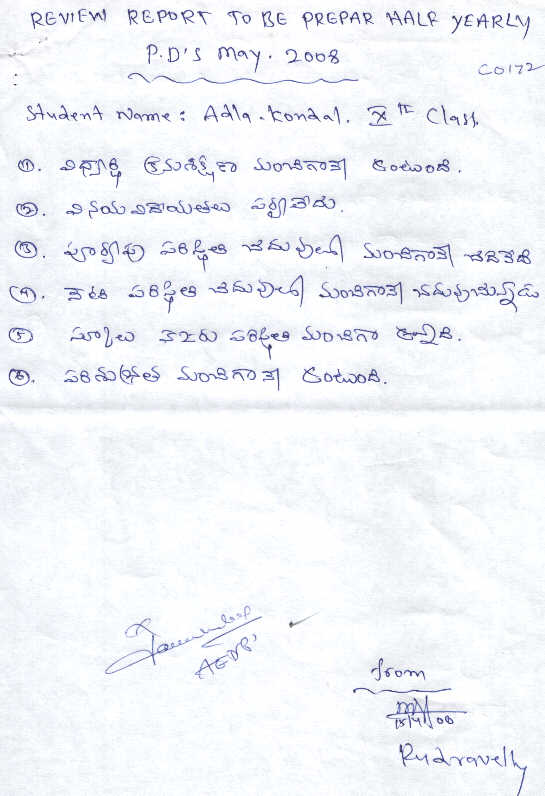 REVIEW REPORT TO BE PREPAR HALF YEARLY
P.D'S May. 2008
CO172
Student Name: Adla. Kondal. Xth Class.
①. విధ్యార్థి క్రమశిక్షణ మంచిగానే వుంటుంది.
②. వినయవిదాయతలు పర్వాలేదు.
③. పూర్వపు పరిస్థితి చదువులో మంచిగానే చదివేది
④. నేటి పరిస్థితి చదువులో మంచిగానే చదువుచున్నాడు
⑤ స్కూలు హాజరు పరిస్థితి మంచిగా ఉన్నది.
⑥. పరిశుభ్రత మంచిగానే వుంటుంది.
from
Rudravelly